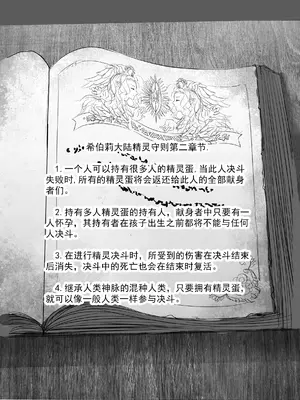 希伯莉大陆精灵守则第二章节.
1.一个人可以持有很多人的精灵蛋.当此人决斗
失败时.所有的精灵蛋将会返还给此人的全部献身
者们。
2.持有多人精灵蛋的持有人，献身者中只要有一
人怀孕，其持有者在孩子出生之前都将不能与任何
人决斗。
3.在进行精灵决斗时，所受到的伤害在决斗结束
后消失，决斗中的死亡也会在结束时复活。
4.继承人类神脉的混种人类，只要拥有精灵蛋，
就可以像一般人类一样参与决斗。